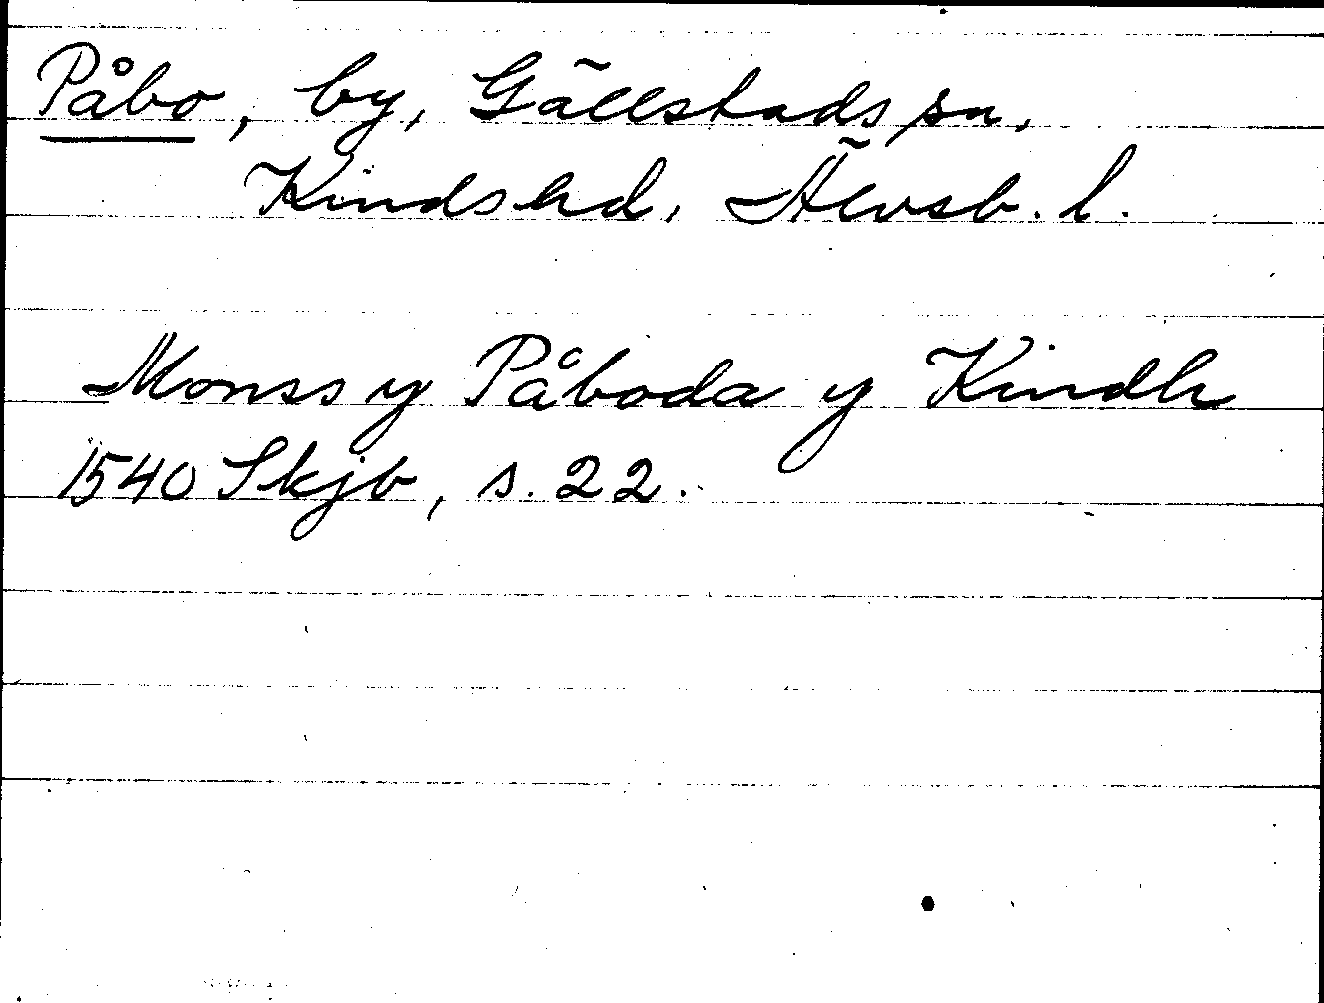 Påbo, by, Gällstads sn,
Kinds hd, Älvsb. l.
Monss y Påboda y Kindh
1540 Skjb, s. 22.